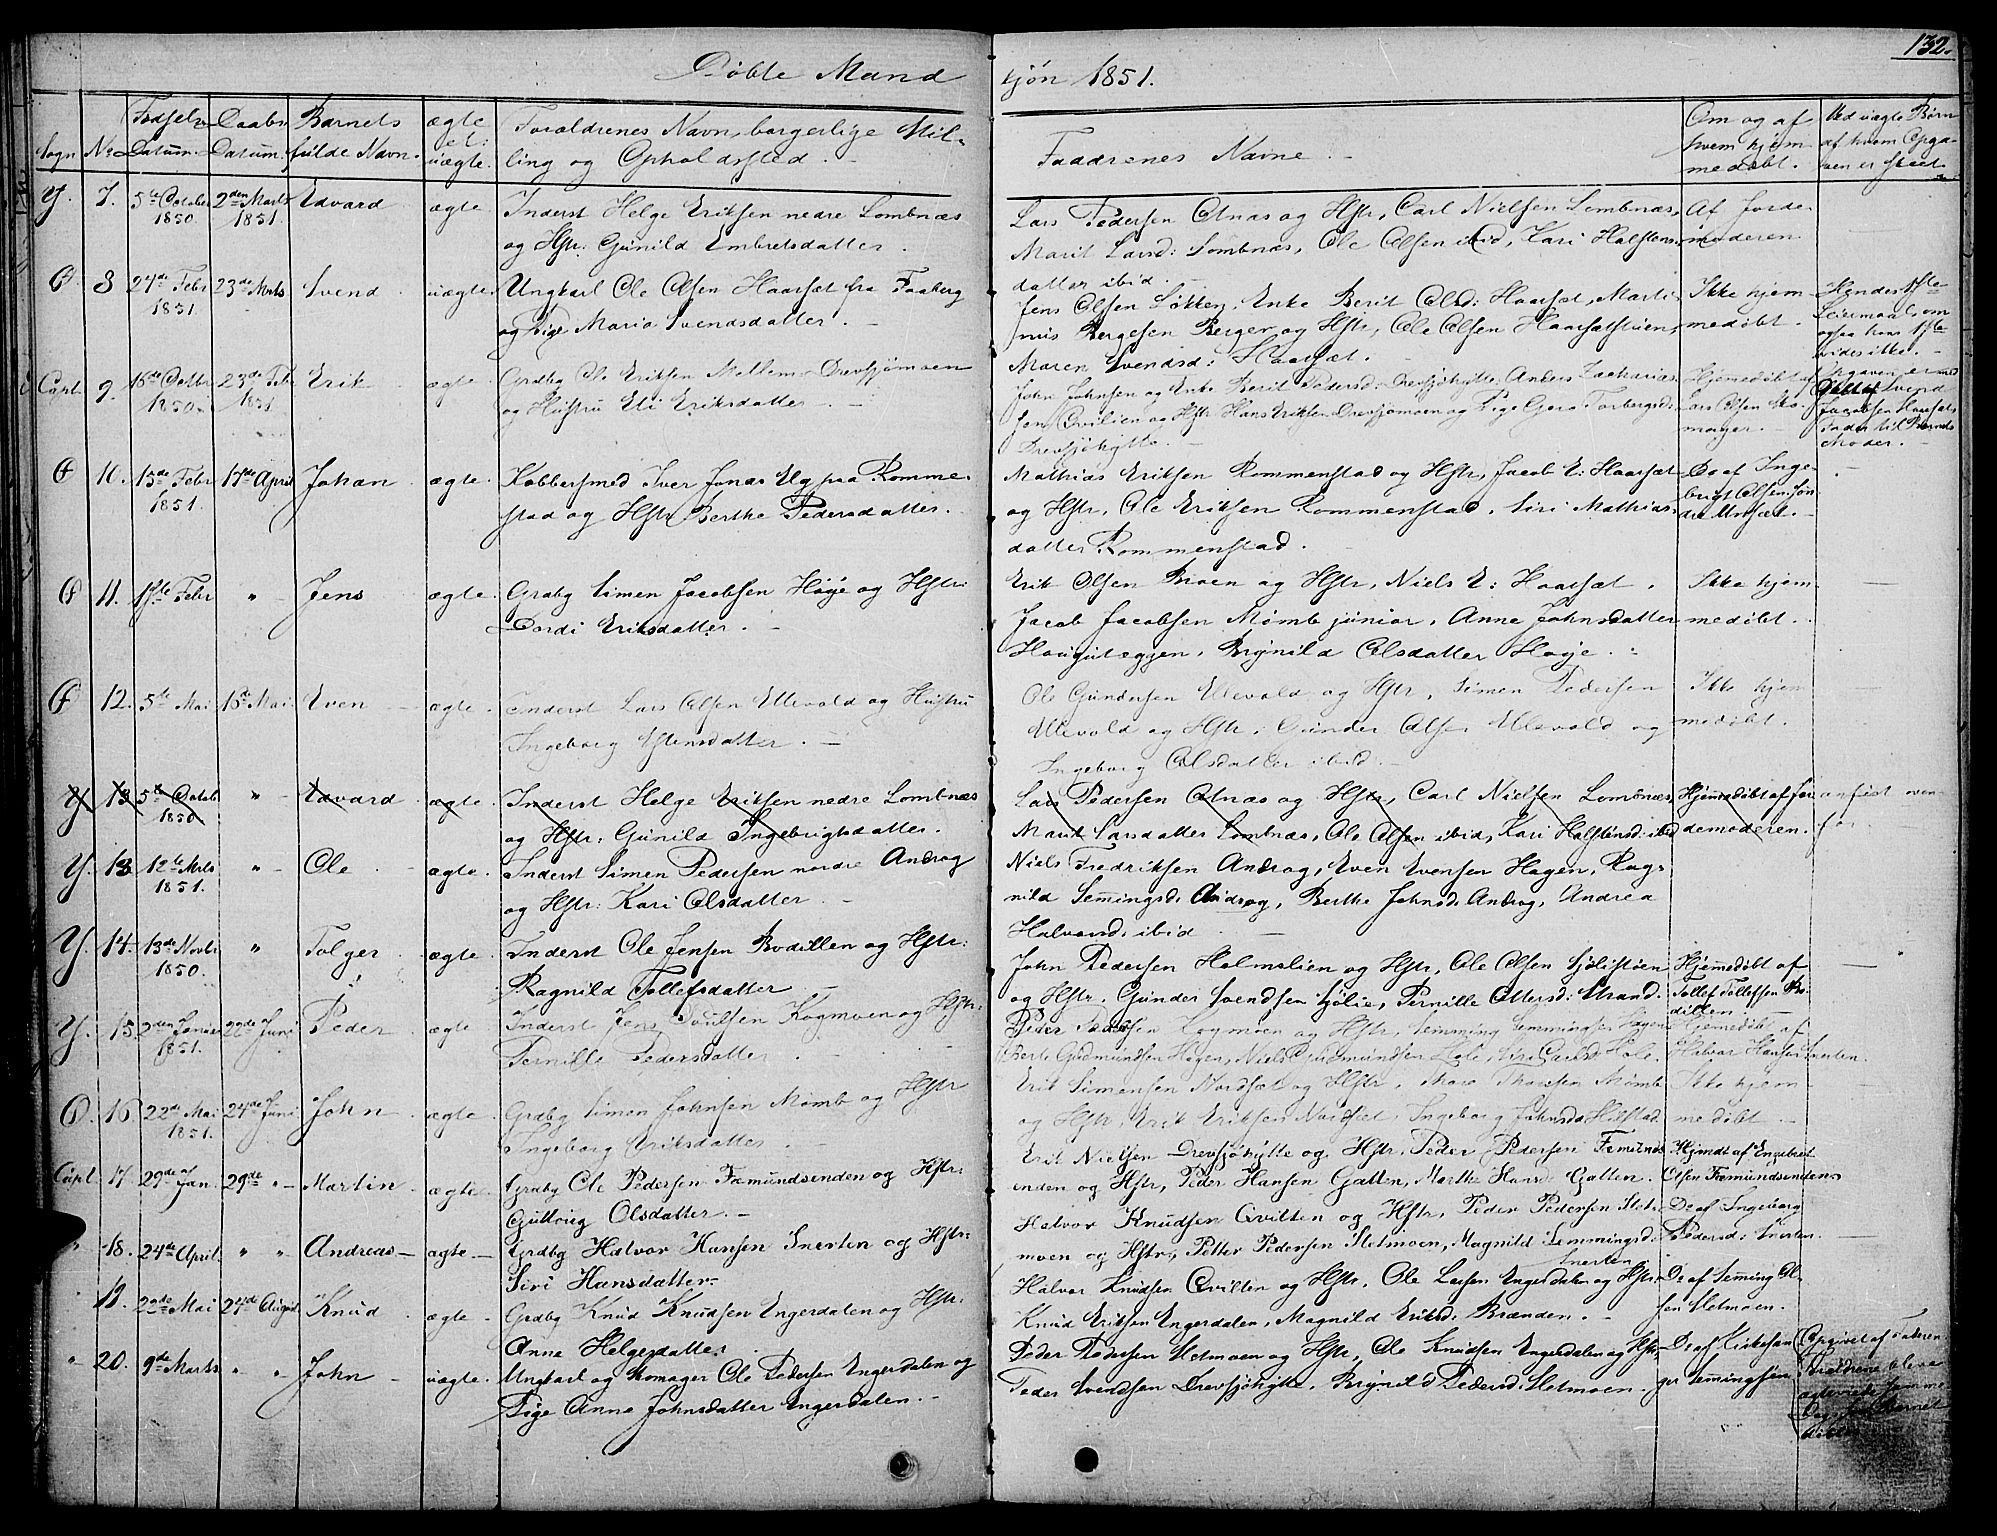 132.
Døbte Mand
kjön 1851.
Sogn
No
Fødsels Datum.
Daabs Datum.
Barnets fulde Navn.
ægte el: uægte.
Forældrenes Navn, borgerlige Stilling og Opholdssted.
Faddrenes Navne.
Om og af hvem hjemmedøbt.
Ved uægte Børn af hvem Opgaven er skeet
Y. 7. 5te October 1850. 2den Marts 1851. Edvard ægte. Inderst Helge Eriksen nedre Lombnæs
og Hstr: Gunild Embretsdatter.
Lars Pedersen Atnæs og Hstr, Carl Nielsen Lombnæs,
Marit Larsd: Lombnæs, Ole Olsen ibid, Kari Halstens-
datter ibid.
Af Jorde-
moderen
8 24de Febr 1851. 23de Marts Svend uægte. Ungkarl Ole Olsen Haarsæt fra Faaberg
og Pige Maria Svendsdatter.
Jens Olsen Løkken, Enke Berit Olsd: Haarsæt, Marti-
nus Bergesen Berger og Hstr, Ole Olsen Haarsætstuen,
Maren Svendsd: Haarsæt.
Ikke hjem-
medøbt.
Hendes 1ste
Leiermaal, om
ogsaa hans 1ste
vides ikke.
Opgaven er med
deelt af Svend
Jacobsen Haarsæt
Fader til Barnets
Moder.
Capt. 9. 16de Octbr 1850. 23de Febr 1851 Erik ægte Grdbg Ole Eriksen Mellem-Drevsjømoen
og Hustru Eli Eriksdatter.
John Johnsen og Enke Berit Pedersd: Drevsjöhytte, Anders Zacharias-
sen Qvilten og Hstr Hans Eriksen Drevsjømoen og Pige Goro Torbergsd:
Drevsjöhytte.
Hjemedøbt af
Lars Olsen Sko-
mager.
10. 13de Febr 1851. 17de April Johan ægte. Kobbersmed Iver Jonas Ug paa Romme-
stad og Hstr Berthe Pedersdatter.
Mathias Eriksen Rommenstad og Hstr, Jacob E: Haarsæt
og Hstr, Ole Eriksen Rommenstad, Siri Mathias-
datter Rommenstad.
Do af Inge-
brigt Olsen Søn-
dre Unsæt.
11. Febr " Jens ægte. Grdbg Simen Jacobsen Høye og Hstr:
Dordi Eriksdatter.
Erik Olsen Moen og Hstr, Niels E: Haarsæt,
Jacob Jacobsen Mømb junior, Anne Johnsdatter
Hauguteggen, Brynild Olsdatter Høye.
Ikke hjem-
medøbt.
12. 5te Mai 18de Mai. Even ægte. Inderst Lars Olsen Ullevold og Hustru
Ingeborg Estensdatter.
Ole Gundersen Ullevold og Hstr, Simen Pedersen
Ullevold og Hstr, Gunder Olsen Ullevold og
Ingeborg Olsdatter ibid.
Ikke hjem
medøbt.
Y 13 5te Octob 1850 " Edvard ægte. Inderst Helge Eriksen nedre Lombnæs
og Hstr: Gunild Ingebrigtsdatter.
Lars Pedersen Atnæs og Hstr, Carl Nielsen Lombnæs,
Marit Larsdatter Lombnæs, Ole Olsen ibid, Kari Halstensd: ibid
Hjemmedøbt af Jor-
demoderen.
anført oven-
for.
Y. 13 12te Marts 1851. " Ole ægte. Inderst Simen Pedersen nordre Androg
og Hstr: Kari Olsdatter
Niels Fredriksen Androg, Even Evensen Hagen, Rag-
nild Semingsd: Androg, Berthe Johnsd: Androg, Andrea
Halvorsd: ibid
Y. 14. 13de Novbr 1850. " Tolger ægte. Inderst Ole Jensen Bodillen og Hstr:
Ragnild Tollefsdatter
John Pedersen Holmslien og Hstr, Ole Olsen Sjölistøen
og Hstr. Gunder Svendsen Sjölie, Pernille Ottersd: Strand.
Hjemmedøbt af
Tollef Tollefsen Bo-
dillen.
Y. 15. 2den Januar 1851. 22de Juni Peder ægte Inderst Jens Poulsen Kogmoen og Hstr:
Pernille Pedersdatter
Peder Pedersen Kogmoen og Hstr, Semming Semmingsen Hagen
Berte Gudmundsen Hagen, Niels Gudmundsen Hole, Siri Larsd: Hole.
Hjemmedøbt af
Halvor Hansen Snerten.
16. 22de Mai 1851. 24de Juni John ægte. Grdbg Simen Johnsen Mömb og Hstr
Ingeborg Eriksdatter
Erik Simensen Nordset og Hstr, Thore Thoresen Mömb
og Hstr, Erik Eriksen Nordset, Ingeborg Johnsd: Hilstad
Ikke hjem
medøbt
Capt. 17. 29de Jan. 29de " Martin ægte. Grdbg Ole Pedersen Fæmundsenden og Hstr:
Guttorig Olsdatter.
Erik Nielsen Drevsjöhytte og Hstr, Peder Pedersen Femunds-
enden og Hstr, Peder Hansen Gatten, Marthe Hansd: Gatten.
Hjemdt af Engebret
Olsen Fæmundsenden.
" 18. 24de April " " Andreas ægte Grdbg Halvor Hansen Snerten og Hstr:
Siri Hansdatter
Halvor Knudsen Qvilten og Hstr, Peder Pedersen Slet-
moen og Hstr, Petter Pedersen Sletmoen, Magnild Semmingsd:
Snerten
Do af Ingeborg
Pedersd: Snerten.
19. 22de Mai 24de August Knud ægte Grdbg Knud Knudsen Engerdalen og Hstr:
Anne Helgesdatter
Halvor Knudsen Qvilten og Hstr, Ole Larsen Engerdalen og Hstr
Knud Eriksen Engerdalen, Magnild Eriksd: Brænden.
Do af Semming Ol-
sen Sletmoen.
" 20. 9de Marts " " John uægte. Ungkarl og Skomager Ole Pedersen Engerdalen og
Pige Anne Johnsdatter Engerdalen.
Peder Pedersen Sletmoen og Hstr, Ole Knudsen Engerdalen og Hstr,
Peder Svendsen Drevsjöhytte, Brynild Pedersd: Sletmoen.
Do af Kirkesan-
ger Semmingsen
Opgivet af Faderen.
Forældrene bleve
ægteviede samme
Dag som Barnet
døbtes